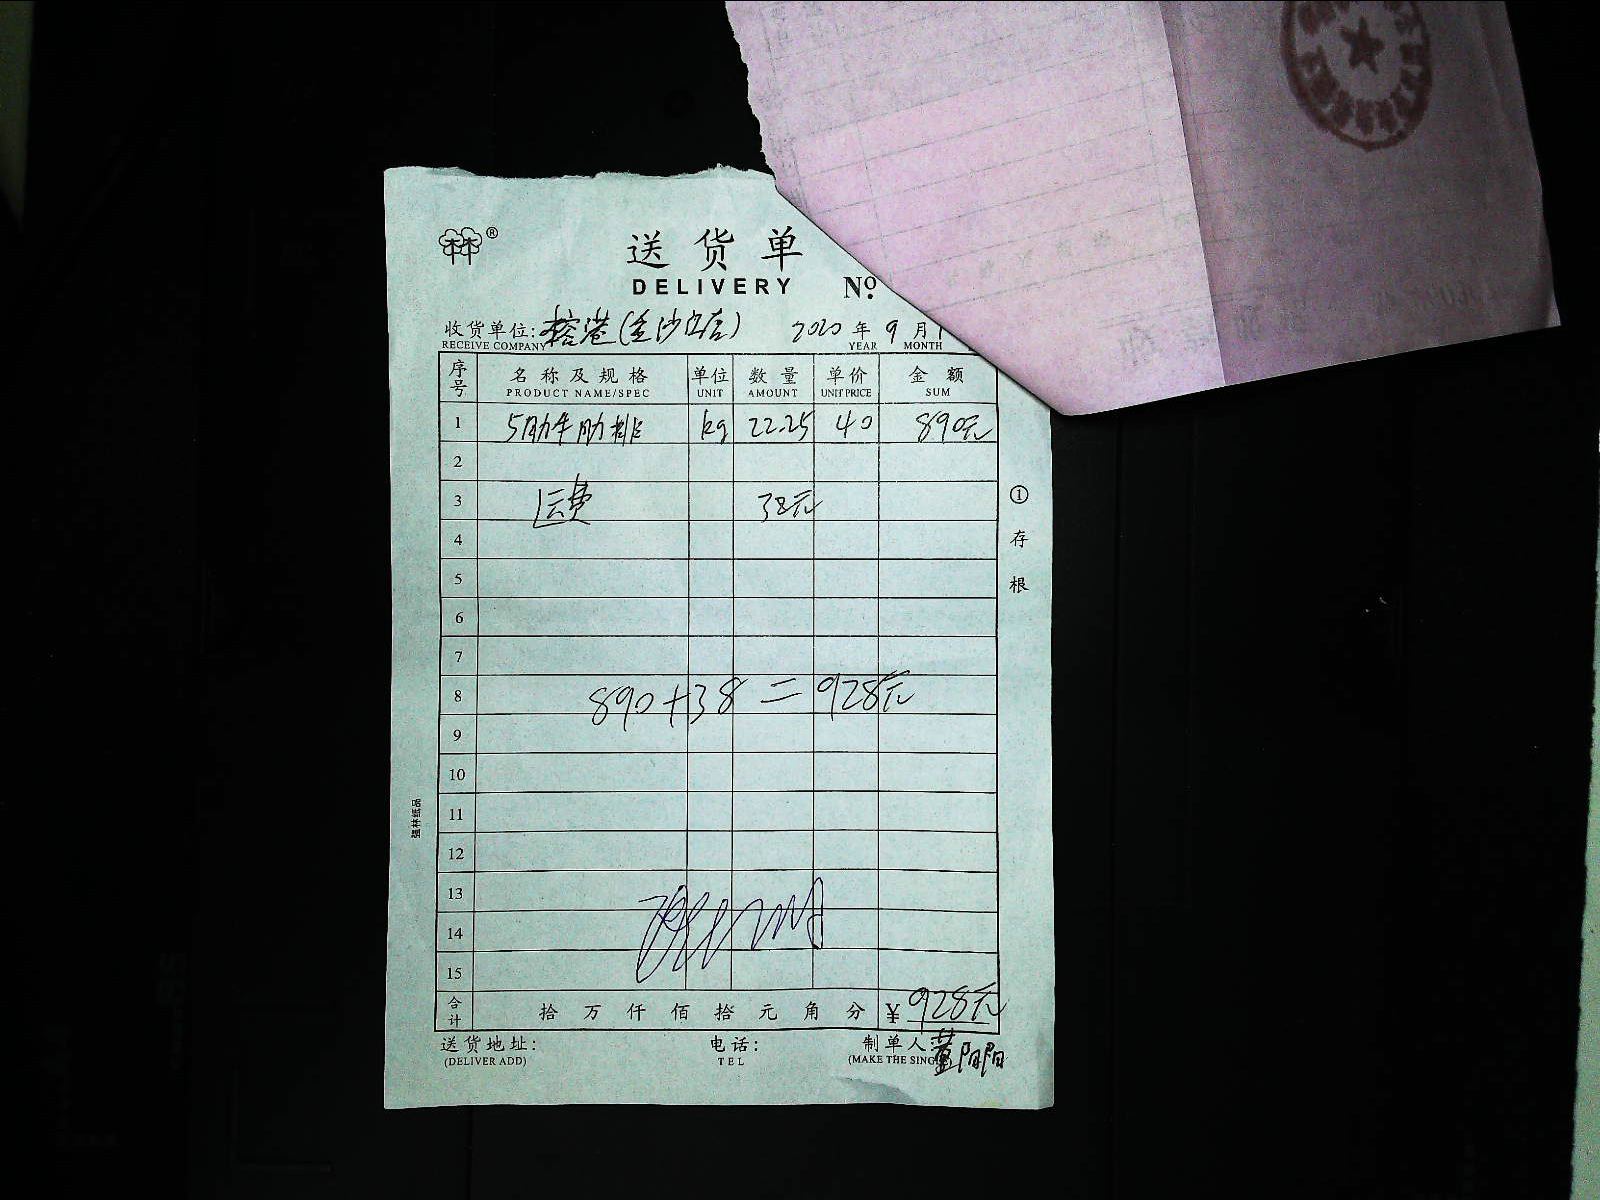 林®
送货单
DELIVERY Nº.
收货单位:榕港(金沙店) 2020年9月1
RECEIVE COMPANY YEAR MONTH
序号 名称及规格 单位 数量 单价 金额
PRODUCT NAME/SPEC UNIT AMOUNT UNIT PRICE SUM
1 5肋牛肋排 kg 22.25 40 890元
2
3 运费 38元
4
5
6
7
8 890+38=928元
9
10
11
12
13
14
15
合计 拾万仟佰拾元角分 ¥928元
送货地址: 电话: 制单人
(DELIVER ADD) TEL (MAKE THE SING
①存根
强林纸品